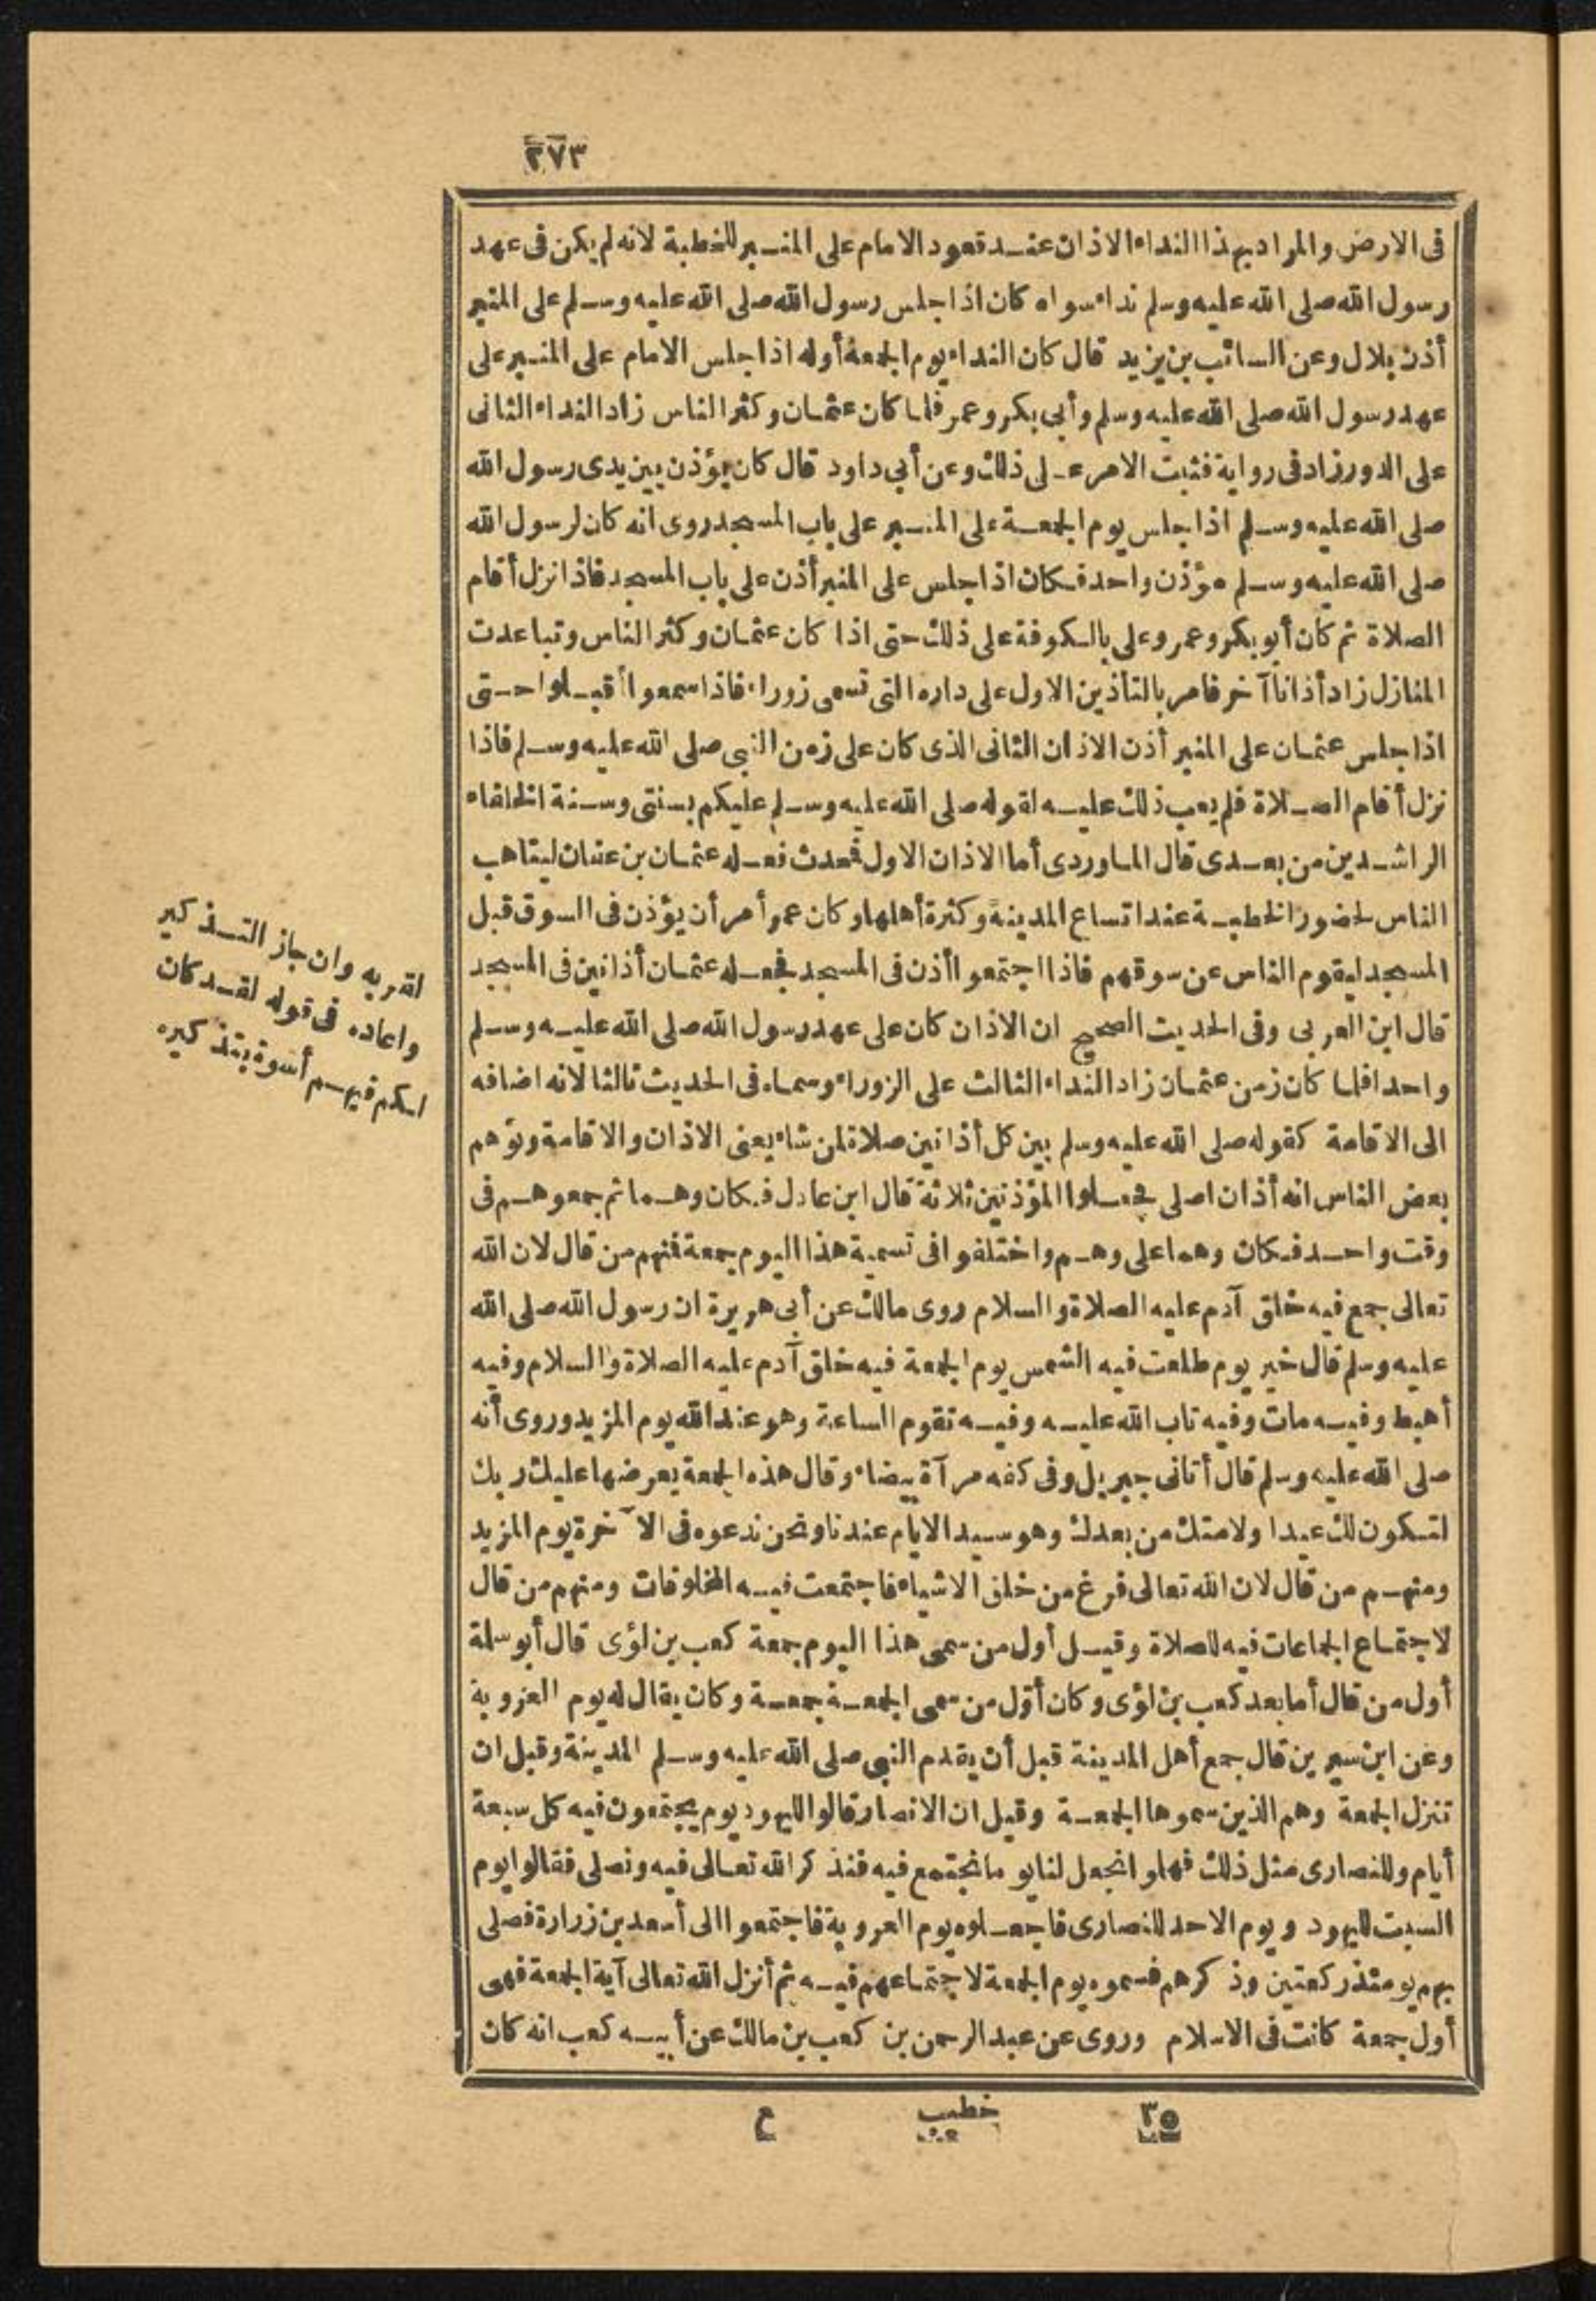 ٢٧٣
فى الارض والمراد بهذا النداء الاذان عند قعود الامام على المنبر للخطبة لانه لم يكن فى عهد
رسول الله صلى الله عليه وسلم نداء سواه كان اذا جلس رسول الله صلى الله عليه وسلم على المنبر
أذن بلال وعن السائب بن يزيد قال كان النداء يوم الجمعة أوله اذا جلس الامام على المنبر على
عهد رسول الله صلى الله عليه وسلم وأبى بكر وعمر فلما كان عثمان وكثر الناس زاد النداء الثانى
على الدور زاد فى رواية فثبت الامر على ذلك وعن أبى داود قال كان يؤذن بين يدى رسول الله
صلى الله عليه وسلم اذا جلس يوم الجمعة على المنبر على باب المسجد روى انه كان لرسول الله
صلى الله عليه وسلم مؤذن واحد فكان اذا جلس على المنبر أذن على باب المسجد فاذا نزل أقام
الصلاة ثم كان أبو بكر وعمر وعلى بالكوفة على ذلك حتى اذا كان عثمان وكثر الناس وتباعدت
المنازل زاد أذانا آخر فامر بالتأذين الاول على داره التى تسمى زوراء فاذا سمعوا أقبلوا حتى
اذا جلس عثمان على المنبر أذن الاذان الثانى الذى كان على زمن النبى صلى الله عليه وسلم فاذا
نزل أقام الصلاة فلم يعب ذلك عليه لقوله صلى الله عليه وسلم عليكم بسنتى وسنة الخلفاء
الراشدين من بعدى قال الماوردى أما الاذان الاول فحدث فعله عثمان بن عفان ليتاهب
الناس لحضور الخطبة عند اتساع المدينة وكثرة أهلها وكان عمر أمر أن يؤذن فى السوق قبل
المسجد ليقوم الناس عن سوقهم فاذا اجتمعوا أذن فى المسجد فجعله عثمان أذانين فى المسجد
قال ابن العربى وفى الحديث الصحيح ان الاذان كان على عهد رسول الله صلى الله عليه وسلم
واحدا فلما كان زمن عثمان زاد النداء الثالث على الزوراء وسماه فى الحديث ثالثا لانه اضافه
الى الاقامة كقوله صلى الله عليه وسلم بين كل أذانين صلاة لمن شاء يعنى الاذان والاقامة وتوهم
بعض الناس انه أذان اصلى فجعلوا المؤذنين ثلاثة قال ابن عادل فكان وهما ثم جمعوهم فى
وقت واحد فكان وهما على وهم واختلفوا فى تسمية هذا اليوم جمعة فمنهم من قال لان الله
تعالى جمع فيه خلق آدم عليه الصلاة والسلام روى مالك عن أبى هريرة ان رسول الله صلى الله
عليه وسلم قال خير يوم طلعت فيه الشمس يوم الجمعة فيه خلق آدم عليه الصلاة والسلام وفيه
أهبط وفيه مات وفيه تاب الله عليه وفيه تقوم الساعة وهو عند الله يوم المزيد وروى أنه
صلى الله عليه وسلم قال أتانى جبريل وفى كفه مرآة بيضاء وقال هذه الجمعة يعرضها عليك ربك
لتكون لك عيدا ولامتك من بعدك وهو سيد الايام عندنا ونحن ندعوه فى الآخرة يوم المزيد
ومنهم من قال لان الله تعالى فرغ من خلق الاشياء فاجتمعت فيه المخلوقات ومنهم من قال
لاجتماع الجماعات فيه للصلاة وقيل أول من سمى هذا اليوم جمعة كعب بن لؤى قال أبو سلمة
أول من قال أما بعد كعب بن لؤى وكان أوّل من سمى الجمعة جمعة وكان يقال له يوم العروبة
وعن ابن سيرين قال جمع أهل المدينة قبل أن يقدم النبى صلى الله عليه وسلم المدينة وقبل ان
تنزل الجمعة وهم الذين سموها الجمعة وقيل ان الانصار قالوا لليهود يوم يجتمعون فيه كل سبعة
أيام وللنصارى مثل ذلك فهلوا نجعل لنا يوما نجتمع فيه فنذكر الله تعالى فيه ونصلى فقالوا يوم
السبت لليهود ويوم الاحد للنصارى فاجعلوه يوم العروبة فاجتمعوا الى أسعد بن زرارة فصلى
بهم يومئذ ركعتين وذكرهم فسموه يوم الجمعة لاجتماعهم فيه ثم أنزل الله تعالى آية الجمعة فهى
أول جمعة كانت فى الاسلام وروى عن عبد الرحمن بن كعب بن مالك عن أبيه كعب انه كان
لقربه وان جاز التذكير
واعاده فى قوله لقد كان
لكم فيهم أسوة بتذكيره
٣٥ خطيب ع